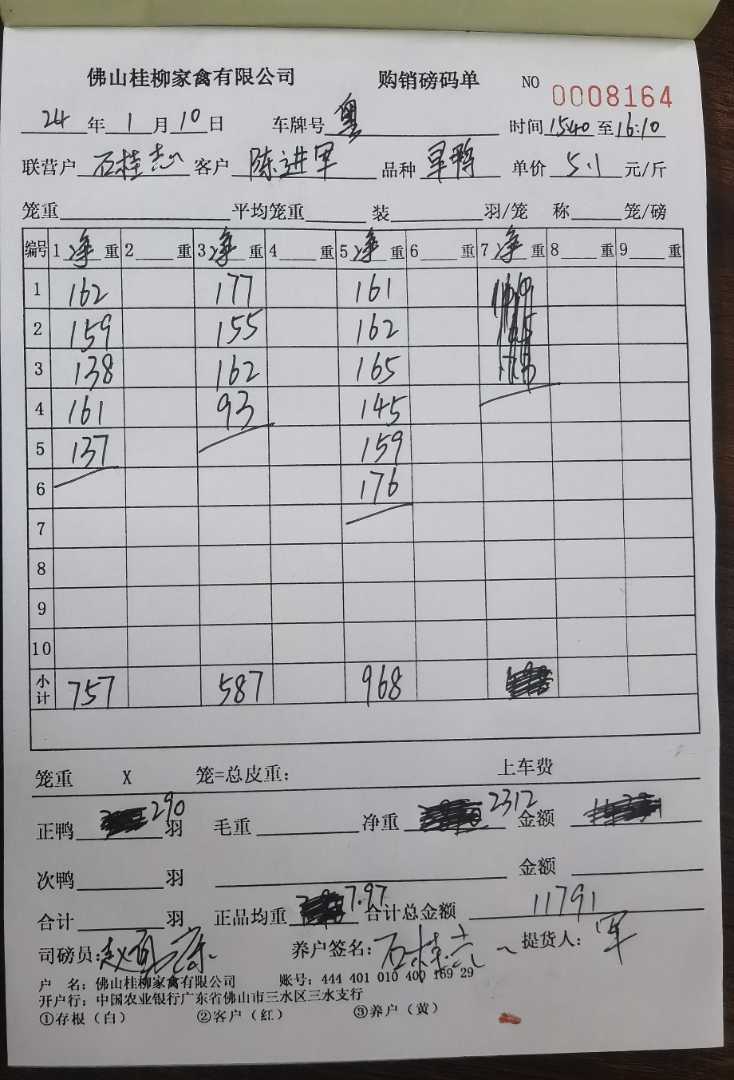 佛山桂柳家禽有限公司 购销磅码单 NO 0008164
24 年 1 月 10 日 车牌号 粤 时间 15:40 至 16:10
联营户 石桂志 客户 陈进军 品种 单价 5.1 元/斤
笼重 平均笼重 装 羽/笼 称 笼/磅
编号 1 净 重 2 重 3 净 重 4 重 5 净 重 6 重 7 净 重 8 重 9 重
1 162 177 161
2 159 155 162
3 138 162 165
4 161 93 145
5 137 159
6 176
7
8
9
10
小计 757 587 968
笼重 X 笼=总皮重: 上车费
正鸭 290 羽 毛重 净重 2312 金额
次鸭 羽 金额
合计 羽 正品均重 7.97 合计总金额 11791
司磅员: 养户签名: 石桂志 提货人: 军
户 名: 佛山桂柳家禽有限公司 账号: 444 401 010 400 169 29
开户行: 中国农业银行广东省佛山市三水区三水支行
①存根(白) ②客户(红) ③养户(黄)